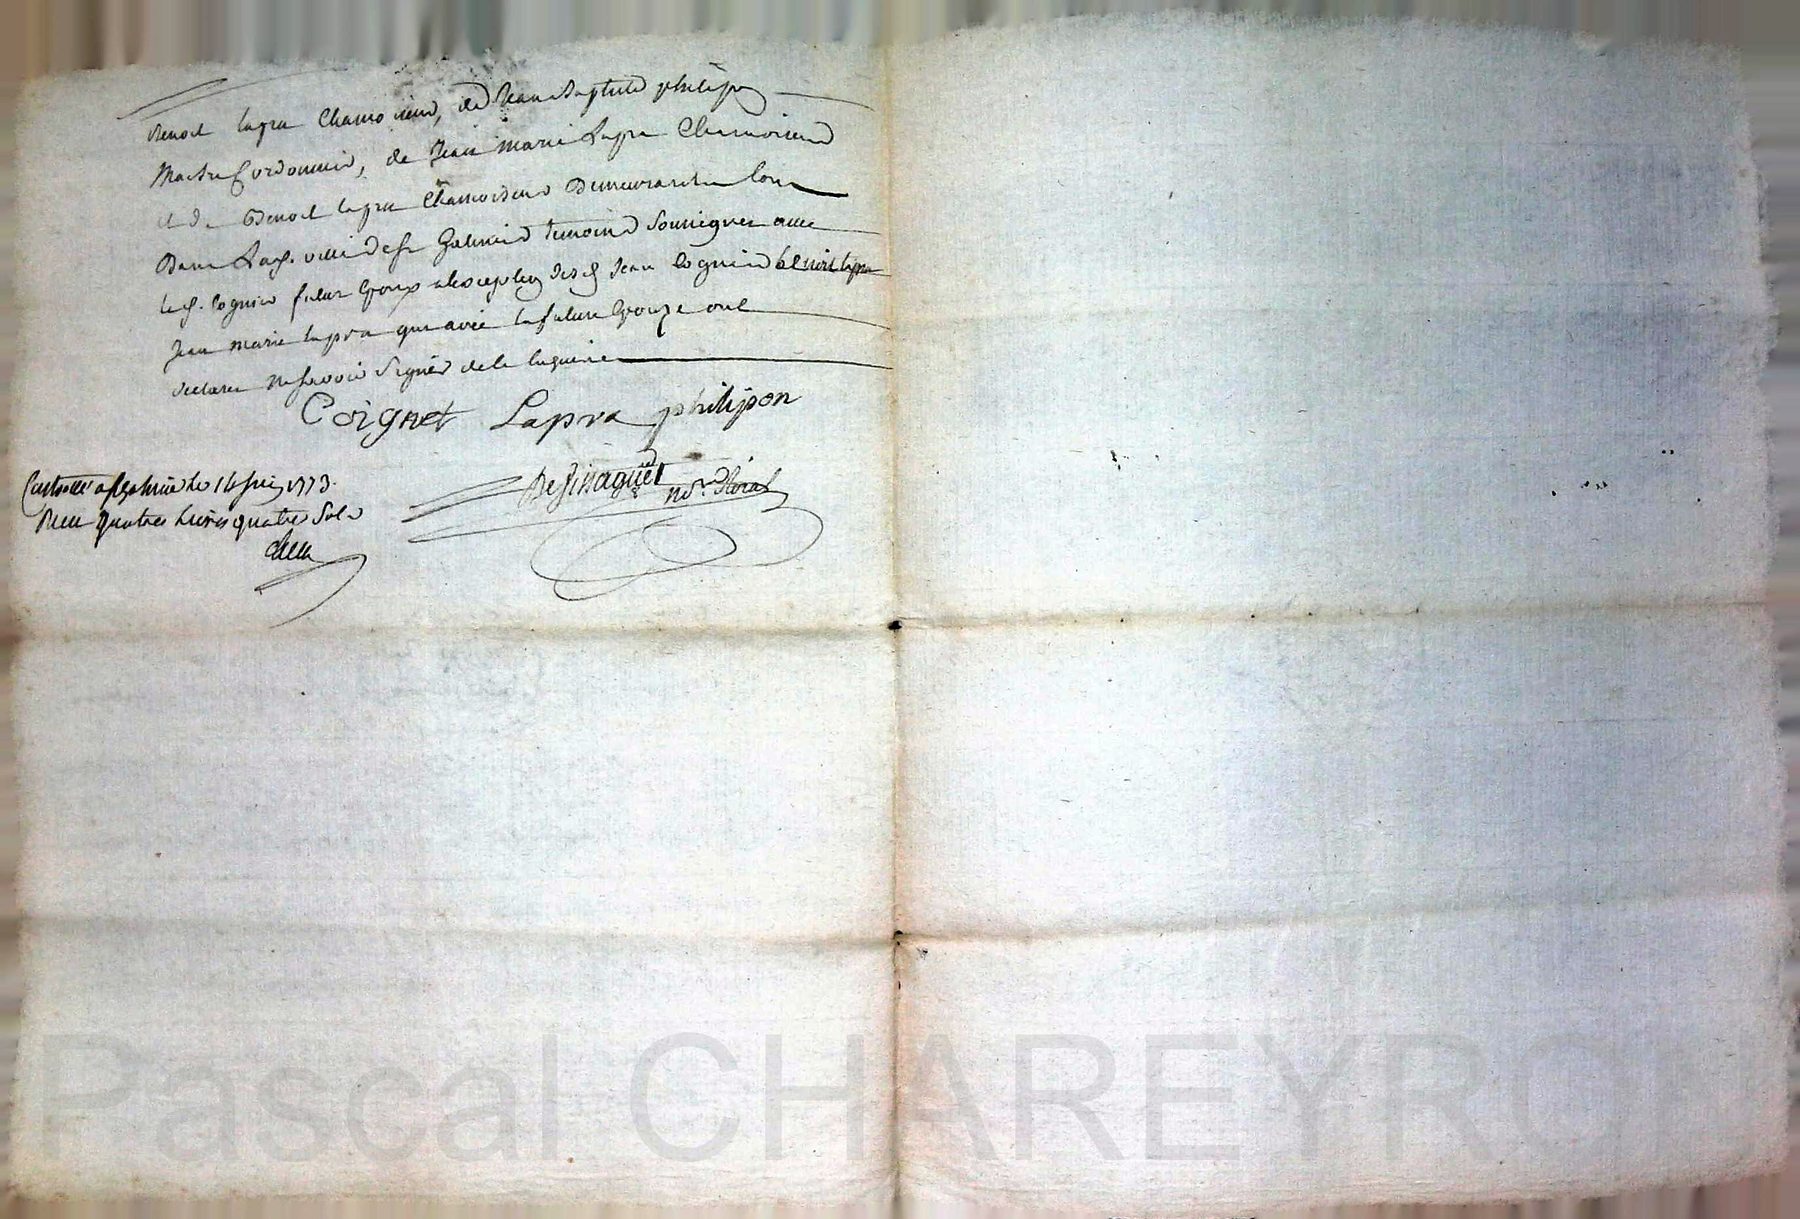 Benoit lapra Chamoiseur, de Jean Baptiste philipon
Maitre Cordonnier, de Jean Marie Lapra Chamoiseur
et de Benoit lapra Chamoiseur Demeurants tous
Dans Lad. ville de st Galmier temoins soussignes avec
led. Cognier futur Epoux a lexception desd Jean Cognier benoit lapra
Jean Marie lapra qui avec la future Epouze ont
declarer ne scavoir signer de le enquerie
Coignet Lapra philipon
Desinaguet nore Roial
Controllé a st galmier le 14 juin 1773.
Reçu quatres livres quatre sols
Pascal CHAREYRON